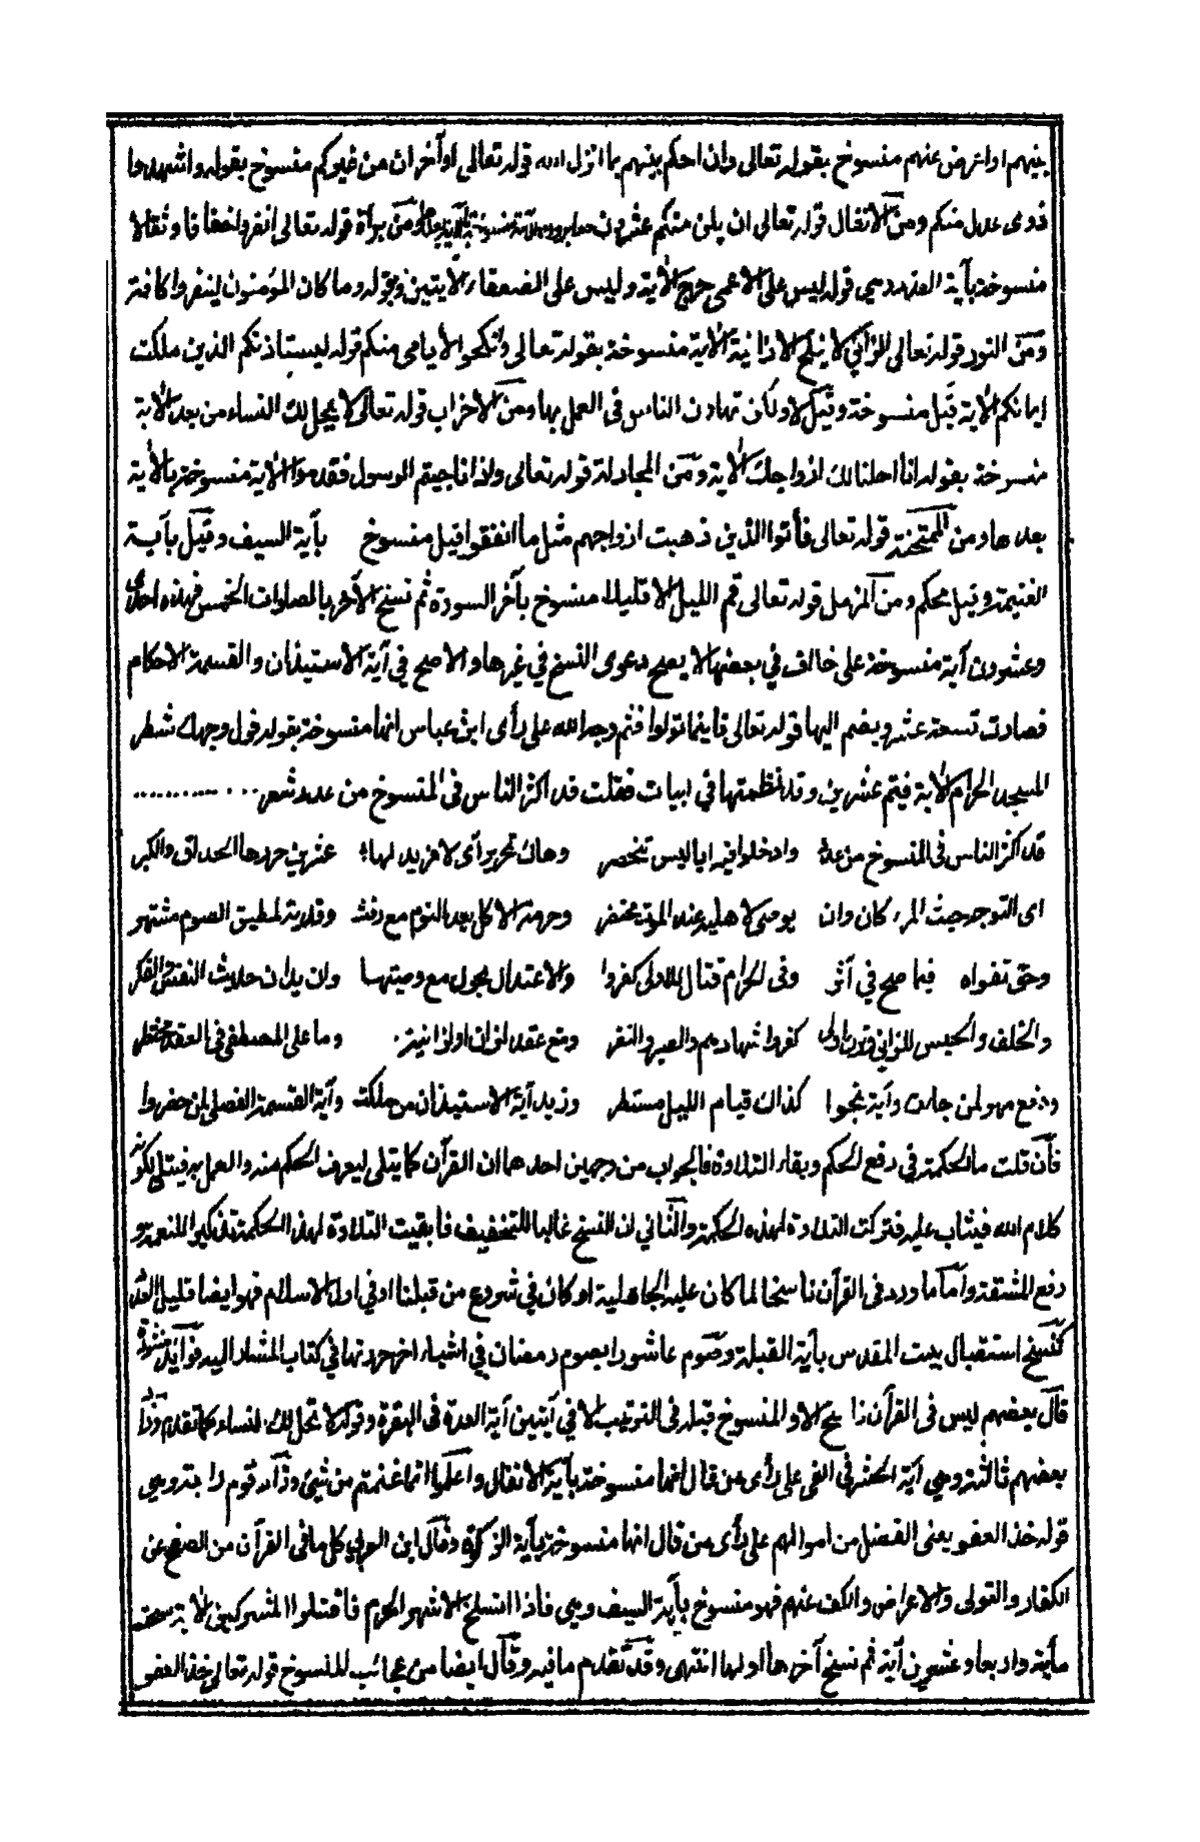 بينهم او اعرض عنهم منسوخ بقوله تعالى وان احكم بينهم بما انزل الله قوله تعالى او آخران من غيركم منسوخ بقوله واشهدوا
ذوى عدل منكم ومن الانفال قوله تعالى ان يكن منكم عشرون صابرون الآية منسوخة بالآية بعدها ومن براة قوله تعالى انفروا خفافا وثقالا
منسوخة بآية العذر وهي قوله ليس على الاعمى حرج الآية وليس على الضعفاء الآيتين وبقوله وما كان المؤمنون لينفروا كافة
ومن النور قوله تعالى الزانى لا ينكح الا زانية الآية منسوخة بقوله تعالى وانكحوا الأيامى منكم قوله ليستاذنكم الذين ملكت
ايمانكم الآية قيل منسوخة وقيل لا ولكن تهاون الناس فى العمل بها ومن الاحزاب قوله تعالى لا يحل لك النساء من بعد الآية
منسوخة بقوله انا احللنا لك ازواجك الآية ومن المجادلة قوله تعالى واذا ناجيتم الرسول فقدموا الآية منسوخة بالآية
بعدها ومن الممتحنة قوله تعالى فأتوا الذين ذهبت ازواجهم مثل ما انفقوا قيل منسوخ بآية السيف وقيل بآية
الغنيمة وقيل محكم ومن المزمل قوله تعالى قم الليل الا قليلا منسوخ بآخر السورة ثم نسخ الآخر بالصلوات الخمس فهذه احدى
وعشرون آية منسوخة على خلاف في بعضها لا يصح دعوى النسخ في غيرها والاصح في آية الاستيذان والقسمة الاحكام
فصارت تسعة عشر ويضم اليها قوله تعالى فاينما تولوا فثم وجه الله على رأى ابن عباس انها منسوخة بقوله فول وجهك شطر
المسجد الحرام الآية فيتم عشرين وقد نظمتها في ابيات فقلت قد اكثر الناس فى المنسوخ من عدد شعر
قد اكثر الناس فى المنسوخ من عدد وادخلوا فيه ايا ليس تنحصر وهاك تحرير آى لا مزيد لها عشرين حررها الحذاق والكبر
اى التوجه حيث المرء كان وان يوصى لاهليه عند الموت محتضر وحرمة الاكل بعد النوم مع رفث وفدية لمطيق الصوم مشتهر
وحق تقواه فيما صح في اثر وفى الحرام قتال للاولى كفروا والاعتداد بحول مع وصيتها وان يدان حديث النفس والفكر
والحلف والحبس للزاني وترك اولى كفروا شهادتهم والصبر والنفر ومنع عقد لزان او لزانية وما على المصطفى في العقد محتظر
ودفع مهر لمن جاءت وآية نجوا كذاك قيام الليل مستطر وزيد آية الاستيذان من ملكت وآية القسمة الفضلى لمن حضروا
فان قلت ما الحكمة في رفع الحكم وبقاء التلاوة فالجواب من وجهين احدهما ان القرآن كما يتلى ليعرف الحكم منه والعمل به فيتلى لكونه
كلام الله فيثاب عليه فتركت التلاوة لهذه الحكمة والثاني ان النسخ غالبا للتخفيف فابقيت التلاوة لهذه الحكمة تذكيرا للنعمة و
رفع المشقة واما ما ورد فى القرآن ناسخا لما كان عليه الجاهلية او كان في شروع من قبلنا او في اول الاسلام فهو ايضا قليل العدد
كنسخ استقبال بيت المقدس بآية القبلة وصوم عاشورا بصوم رمضان في اشياء اخر حررتها في كتاب المشار اليه فوائد منثورة
قال بعضهم ليس فى القرآن ناسخ الا والمنسوخ قبله فى الترتيب الا في آيتين آية العدة فى البقرة وقوله لا تحل لك النساء كما تقدم وزاد
بعضهم ثالثة وهي آية الحشر في الفى على رأى من قال انها منسوخة بآية الانفال واعلموا انما غنمتم من شيئ وزاد قوم رابعة وهي
قوله خذ العفو يعنى الفضل من اموالهم على رأى من قال انها منسوخة بآية الزكوة وقال ابن العربي كل ما فى القرآن من الصفح عن
الكفار والتولى والاعراض والكف عنهم فهو منسوخ بآية السيف وهي فاذا انسلخ الاشهر الحرم فاقتلوا المشركين الآية نسخت
مأية واربعا وعشرين آية ثم نسخ آخرها اولها انتهى وقد تقدم ما فيه وقال ايضا من عجائب المنسوخ قوله تعالى خذ العفو